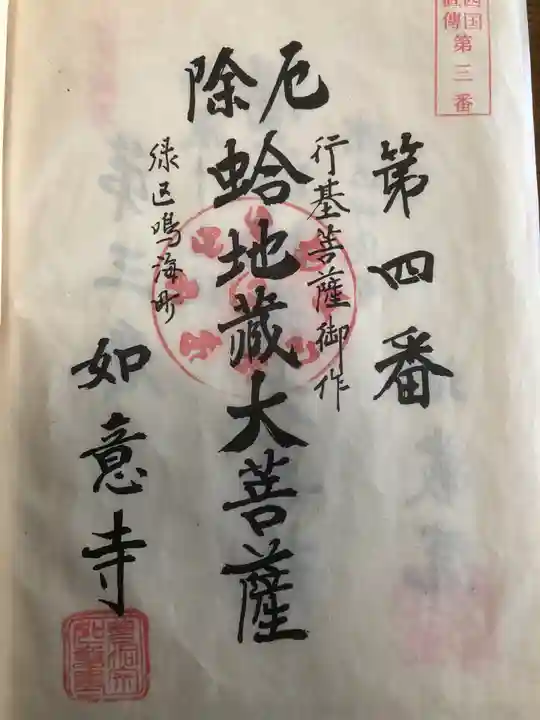 四国
直傳 第三番
第四番
行基菩薩御作
厄除
蛤地蔵大菩薩
緑区鳴海町
如意寺